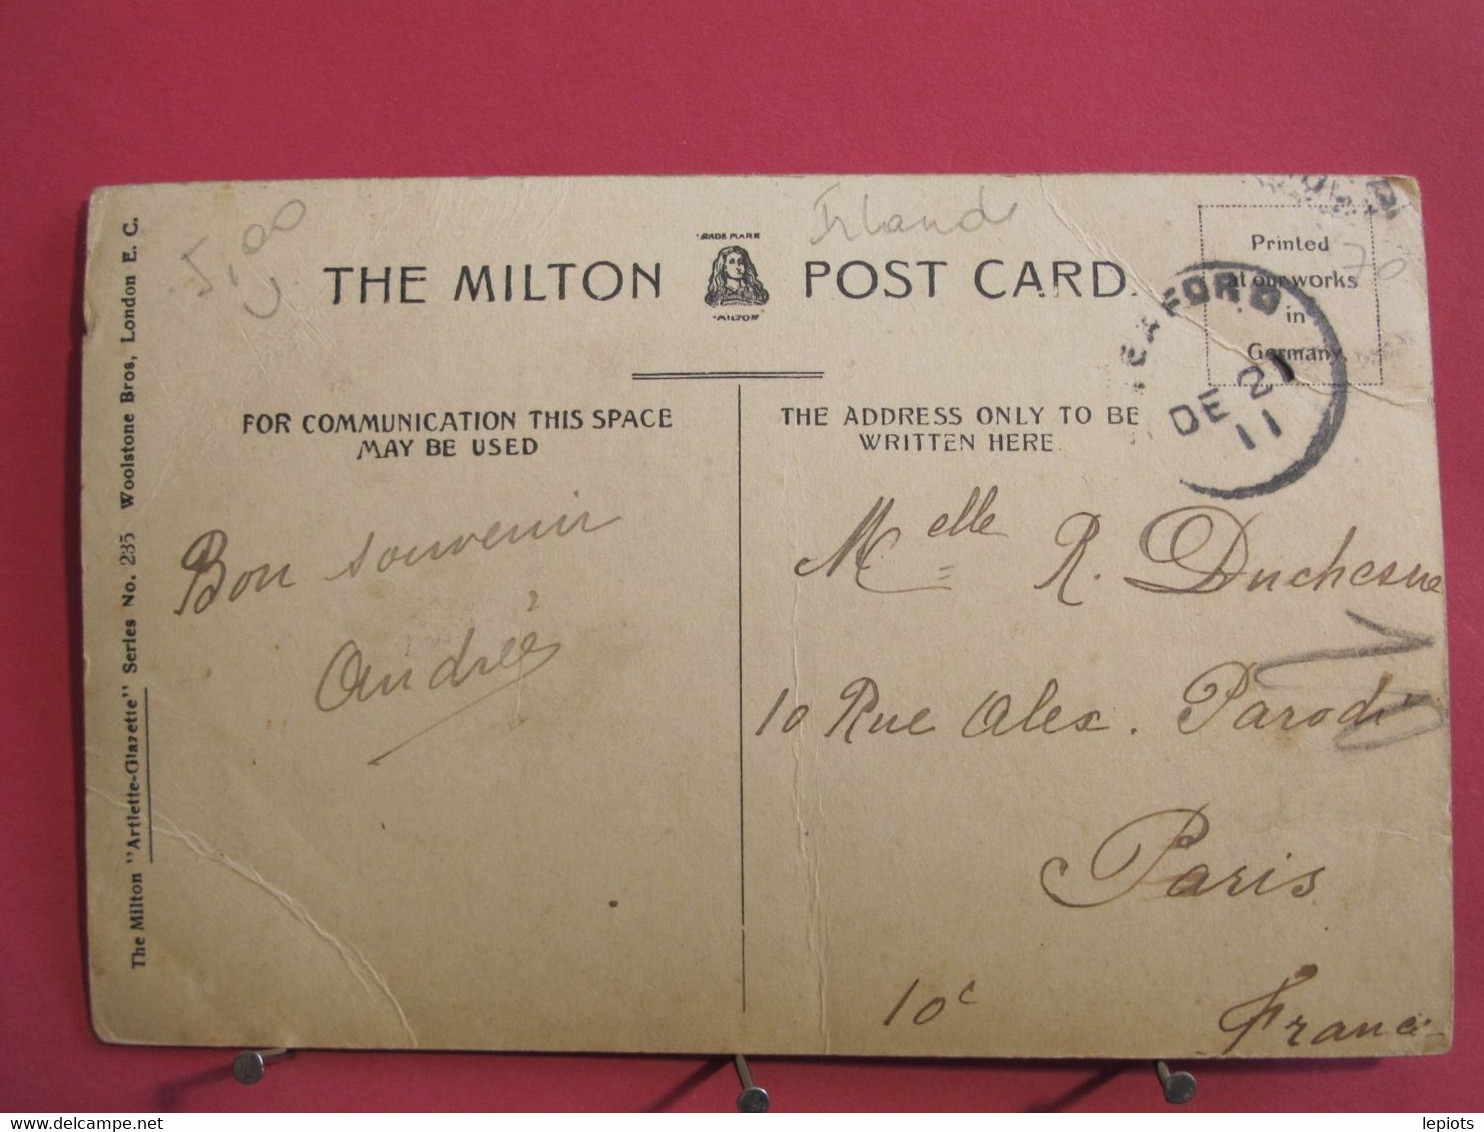 5,00
Irlande
TRADE MARK
THE MILTON POST CARD.
"MILTON"
Printed
at our works
in
Germany.
70
SEAFORD
DE 21
11
FOR COMMUNICATION THIS SPACE
MAY BE USED
THE ADDRESS ONLY TO BE
WRITTEN HERE.
Bon souvenir
Andrée
Melle R. Duchesne
10 Rue Alex. Parodi
Paris
10c
France
The Milton "Artlette-Glazette" Series No. 235 Woolstone Bros, London E. C.
delcampe.net
lepiots